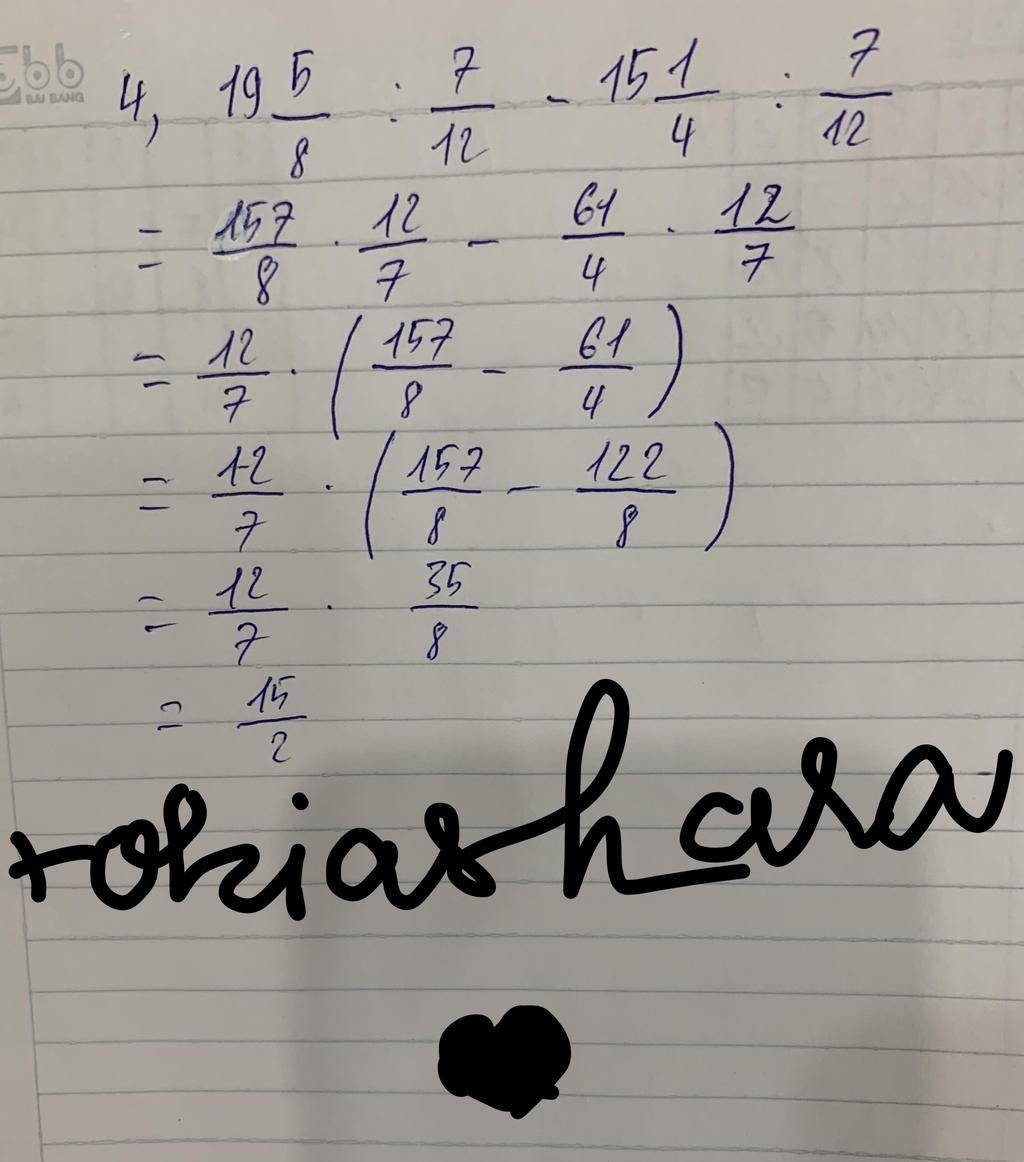 bb
BAI BANG
4, 19 5/8 : 7/12 - 15 1/4 : 7/12
= 157/8 . 12/7 - 61/4 . 12/7
= 12/7 . (157/8 - 61/4)
= 12/7 . (157/8 - 122/8)
= 12/7 . 35/8
= 15/2
tokiashara